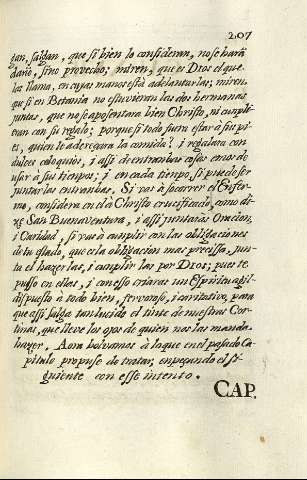 207
gan, salgan, que si bien lo consideran, no se hará
daño, sino provecho; miren, que es Dios el que
las llama, en cuyas manos está adelantarlas; miren,
que si en Betania no estuvieran las dos hermanas
juntas, que no se aposentara bien Christo, ni cumpli-
eran con su regalo; porque si todo fuera estar á sus pi-
es, quien le aderezara la comida? i regalara con
dulces coloquios, i assi de entranbas cosas emos de
usar á sus tiempos; i en cada tiempo, si puede ser
juntarlas entranbas. Si vas á socorrer el Enfer-
mo, considera en el á Christo crucificado, como di-
xo San Buenaventura, i assi juntarás Oracion,
i Caridad, si vas á cumplir con las obligaciones
de tu estado, que es la obligacion mas precissa, jun-
ta el hazerlas, i cumplir las por Dios; pues te
puso en ellas, i con esso criaras un Espiritu agil
dispuesto á todo bien, fervoroso, i caritativo, para
que assi salga tan lucido el tinte de nuestras Cor-
tinas, que lleve los ojos de quien nos las manda
hazer. Aora bolvamos á la que en el pasado Ca-
pitulo propuse de tratar, enpeçando el si-
guiente con esse intento.
CAP.